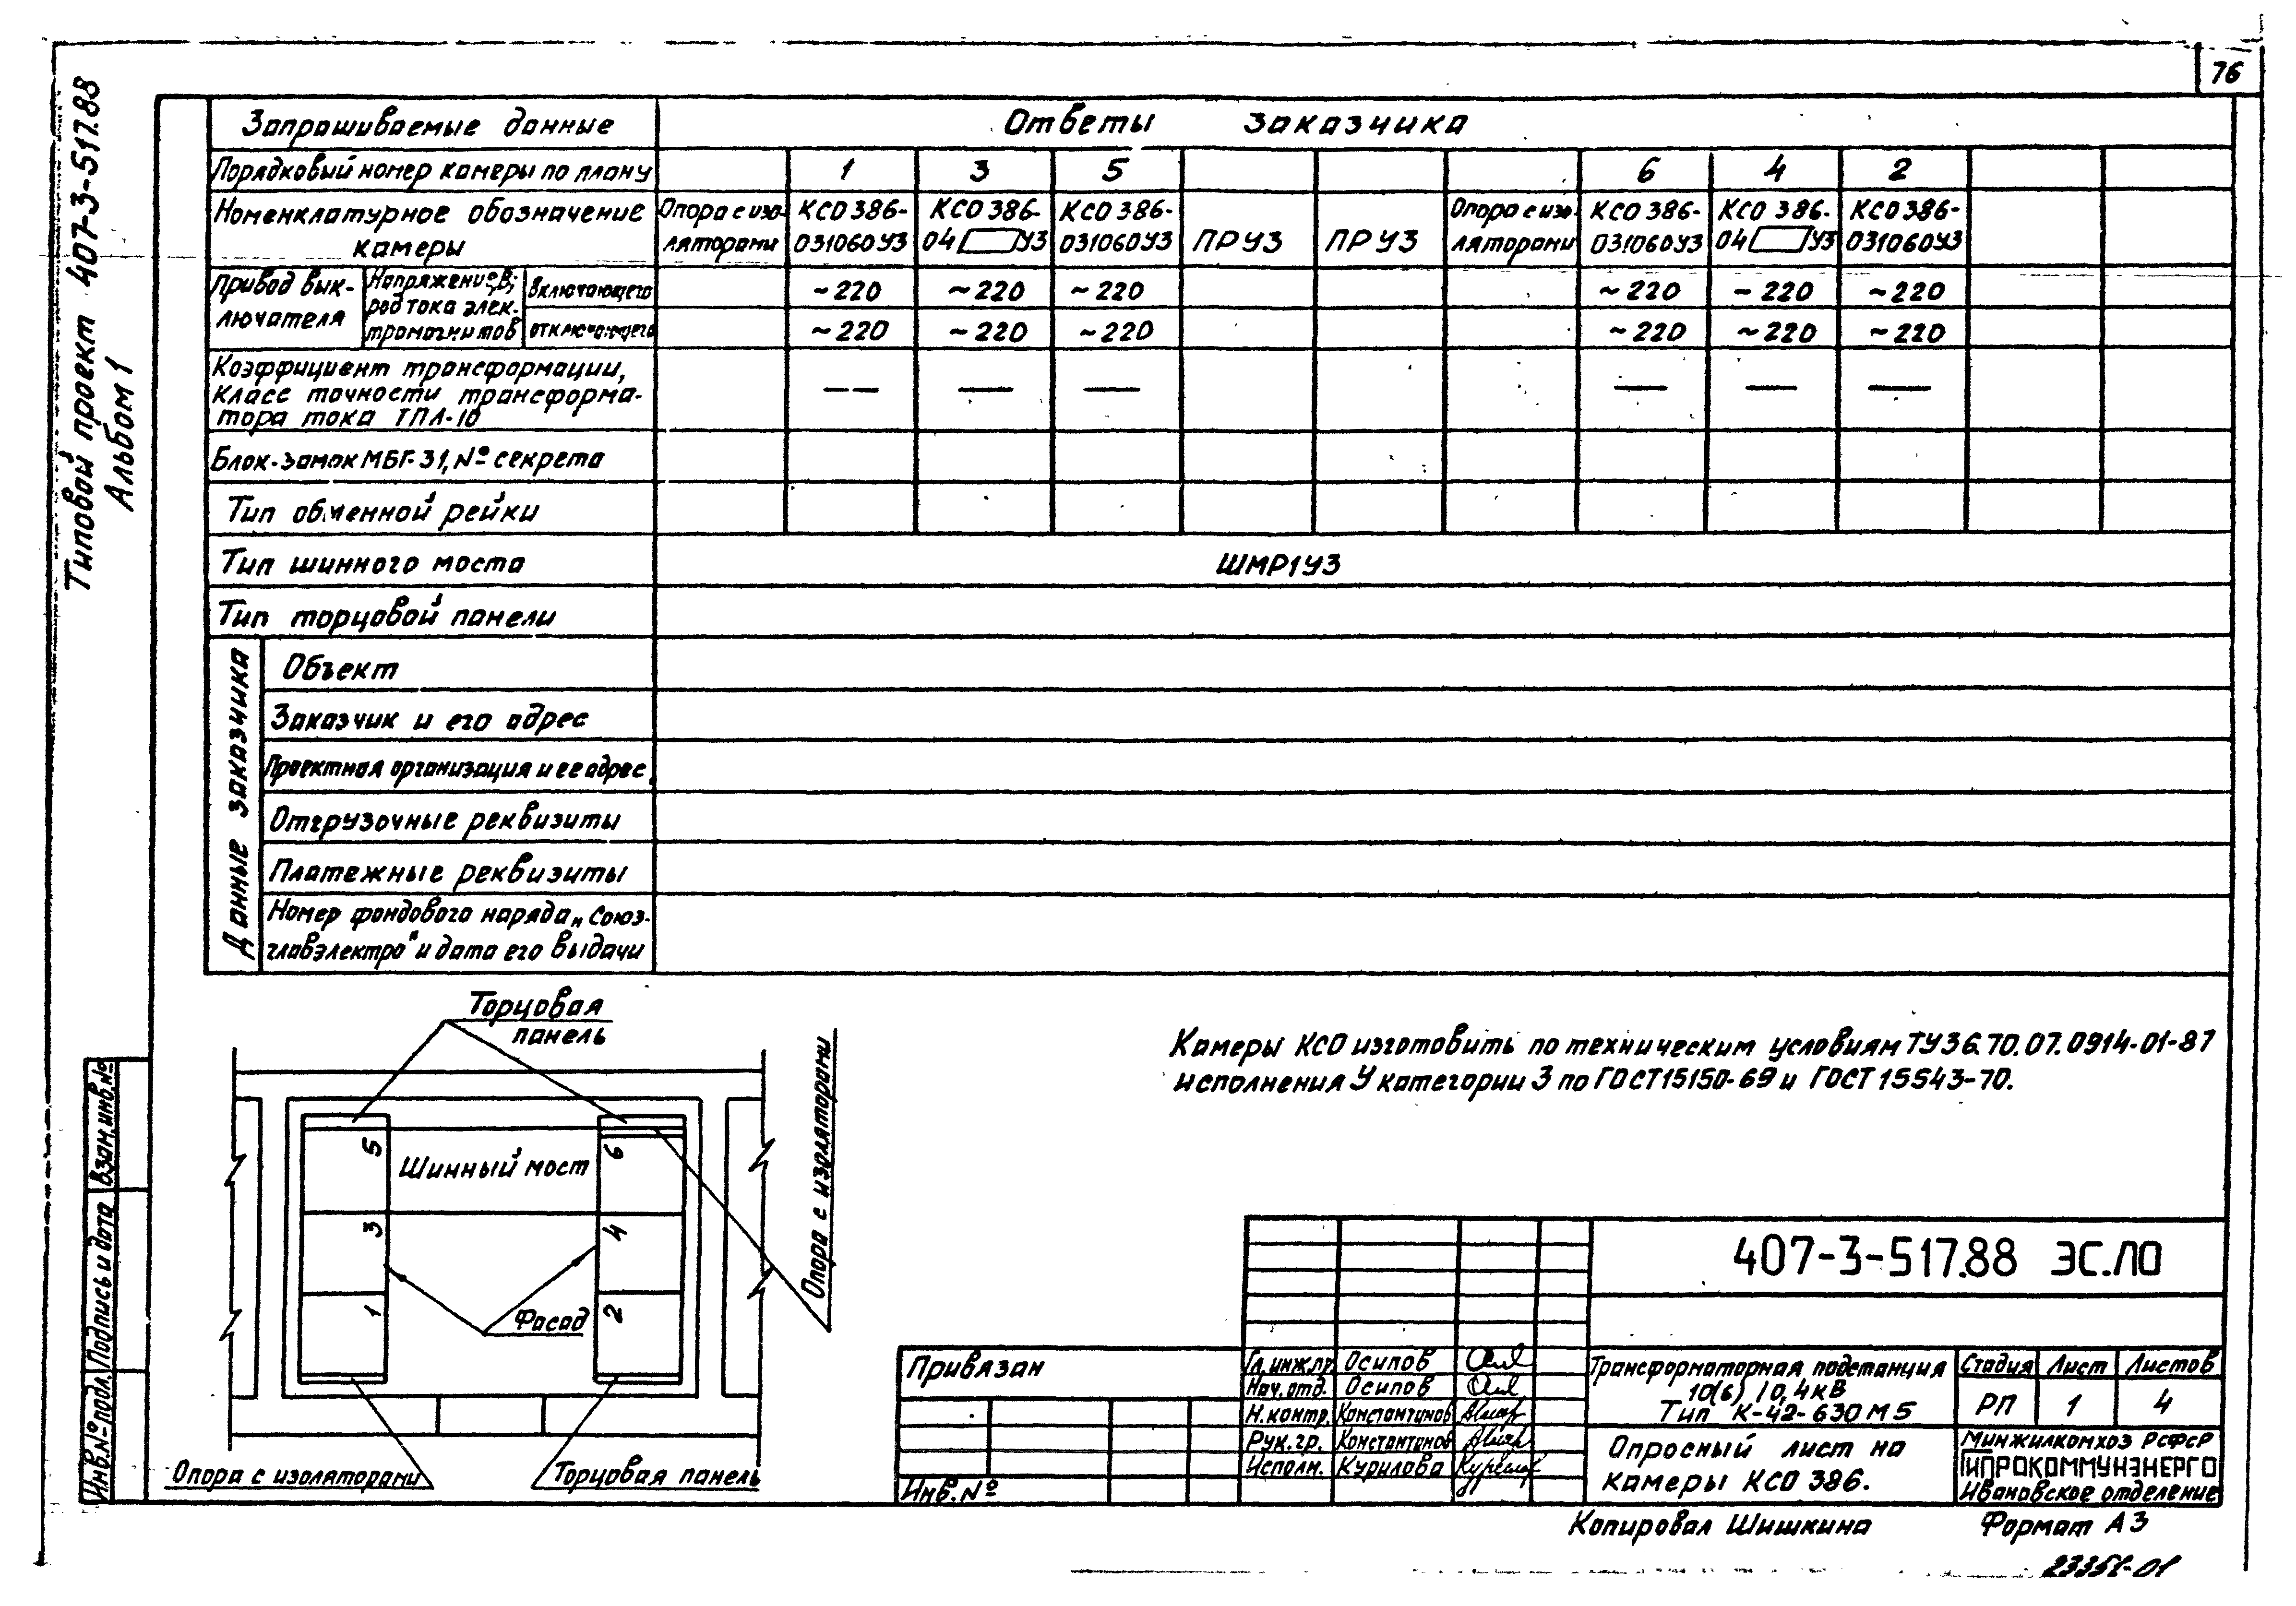 76
Типовой проект 407-3-517.88
Альбом 1
Запрашиваемые данные
Ответы заказчика
Порядковый номер камеры по плану
1 3 5 6 4 2
Номенклатурное обозначение
камеры
Опора с изо-
ляторами
КСО 386-
031060У3
КСО 386-
04 У3
КСО 386-
031060У3
ПРУ3
ПРУ3
Опора с изо-
ляторами
КСО 386-
031060У3
КСО 386-
04 У3
КСО 386-
031060У3
Привод вык-
лючателя
Напряжение, В;
род тока элек-
тромагнитов
включающего
~220 ~220 ~220 ~220 ~220 ~220
отключающего
~220 ~220 ~220 ~220 ~220 ~220
Коэффициент трансформации,
класс точности трансформа-
тора тока ТПЛ-10
— — — — — —
Блок-замок МБГ-31, № секрета
Тип обменной рейки
Тип шинного моста
ШМР1У3
Тип торцовой панели
Данные заказчика
Объект
Заказчик и его адрес
Проектная организация и ее адрес
Отгрузочные реквизиты
Платежные реквизиты
Номер фондового наряда „Союз-
главэлектро" и дата его выдачи
Торцовая
панель
Опора с изоляторами
5
6
Шинный мост
3
4
1
2
Фасад
Опора с изоляторами
Торцовая панель
Камеры КСО изготовить по техническим условиям ТУ36.70.07.0914-01-87
исполнения У категории 3 по ГОСТ15150-69 и ГОСТ 15543-70.
Взам.инв.№
Подпись и дата
Инв.№ подл.
407-3-517.88 ЭС.ЛО
Привязан
Инв.№
Гл.инж.пр. Осипов
Нач.отд. Осипов
Н.контр. Константинов
Рук.гр. Константинов
Исполн. Курилова
Трансформаторная подстанция
10(6)/0,4кВ
Тип К-42-630М5
Стадия Лист Листов
РП 1 4
Опросный лист на
камеры КСО 386.
Минжилкомхоз РСФСР
ГИПРОКОММУНЭНЕРГО
Ивановское отделение
Копировал Шишкина
Формат А3